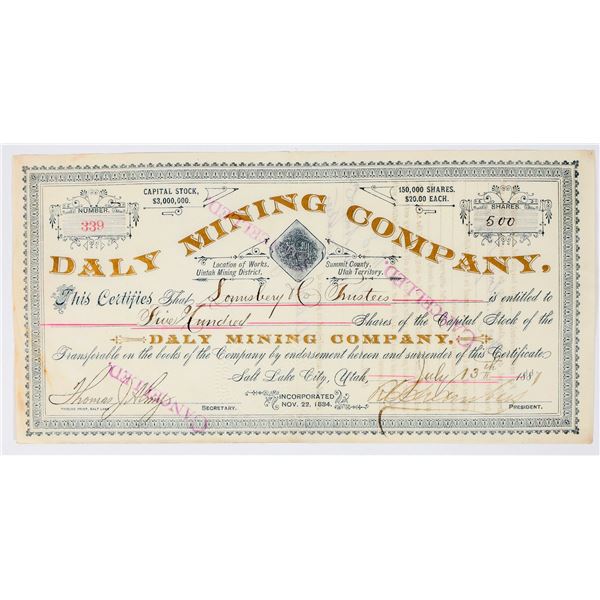 CAPITAL STOCK,
$3,000,000.
150,000 SHARES.
$20.00 EACH.
NUMBER.
339
SHARES
500
DALY MINING COMPANY.
Location of Works,
Uintah Mining District,
Summit County,
Utah Territory.
This Certifies That Lounsbery & Co Trustees is entitled to
Five Hundred Shares of the Capital Stock of the
DALY MINING COMPANY.
Transferable on the books of the Company by endorsement hereon and surrender of this Certificate
Salt Lake City, Utah, July 13th 1887
INCORPORATED
NOV. 22, 1884.
SECRETARY.
PRESIDENT.
CANCELLED.
CANCELLED.
CANCELLED.